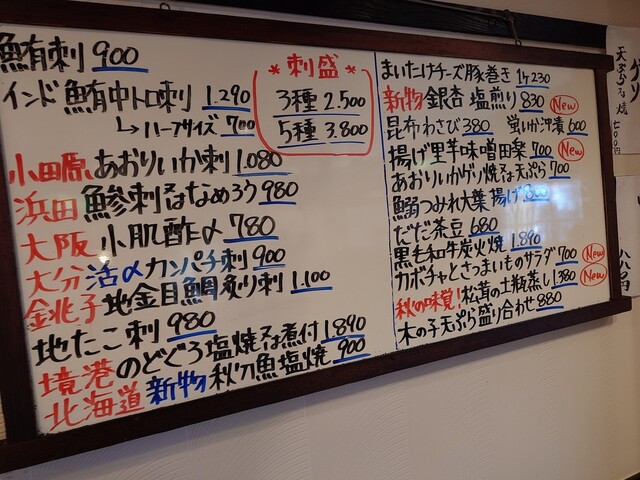 鮪刺 900
インド鮪中トロ刺 1.290
↳ハーフサイズ 700
小田原 あおりいか刺 1.080
浜田 鯵刺 又はなめろう 980
大阪 小肌酢〆 780
大分 活〆カンパチ刺 900
銚子 地金目鯛炙り刺 1.100
地たこ刺 980
境港 のどぐろ塩焼 又は煮付 1.890
北海道 新物 秋刀魚塩焼 900
*刺盛*
3種 2.500
5種 3.800
まいたけチーズ豚巻き 1ケ 230
新物 銀杏 塩煎り 830 New
昆布わさび 380 蛍いか沖漬 600
揚げ里芋味噌田楽 700 New
あおりいかゲソ焼 又は天ぷら 700
鰯つみれ大葉揚げ 800
だだ茶豆 680
黒毛和牛炭火焼 1.890
カボチャとさつまいものサラダ 700 New
秋の味覚! 松茸の土瓶蒸し 1.380 New
木の子天ぷら盛り合わせ 880